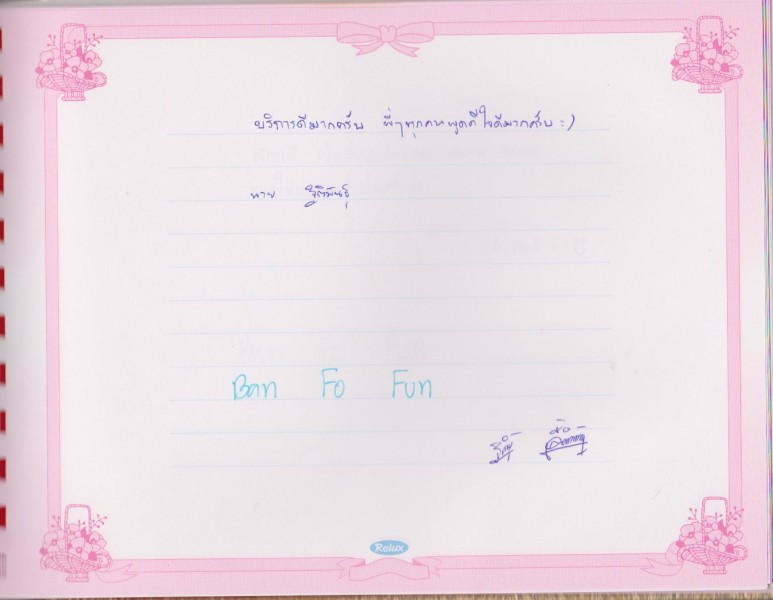 บริการดีมากครับ พี่ๆทุกคนพูดดีใจดีมากครับ :)
นาย ฐิติพันธุ์
Ban Fo Fun
Relux